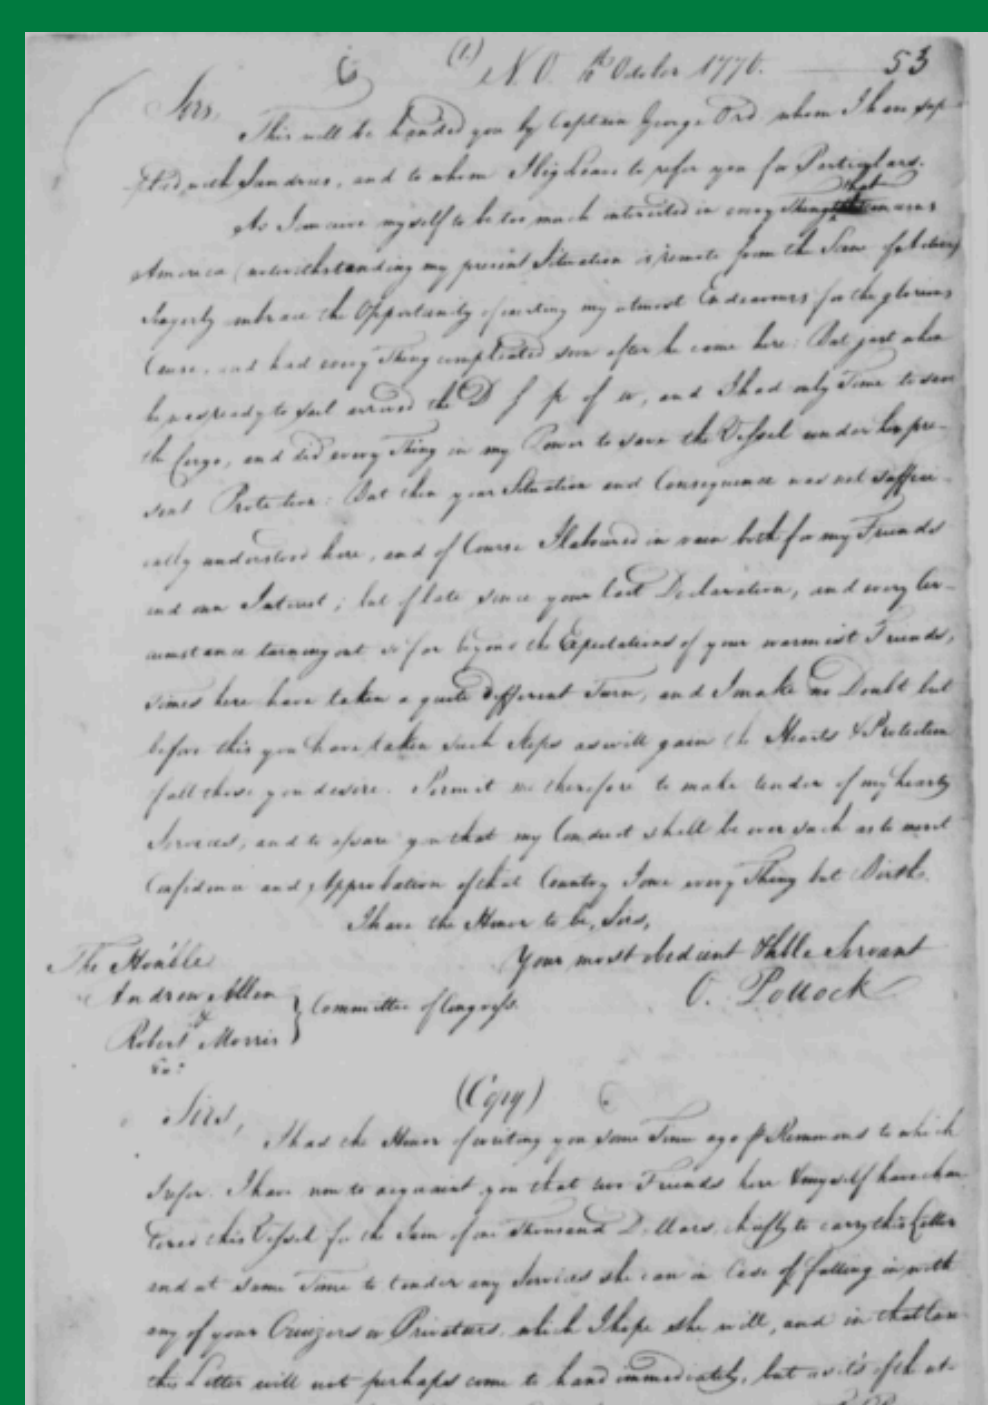 (1.) N. O. October 1776. 53
Sirs,
This will be handed you by Captain George Ord whom I have sup-
plied with Sundries, and to whom I beg Leave to refer you for Particulars.
that
As I conceive myself to be too much interested in every Thing concerns
America (notwithstanding my present Situation is remote from the Scene of Action)
I eagerly embrace the Opportunity of exerting my utmost Endeavours for the glorious
Cause, and had every Thing compleated soon after he came here: But just when
he was ready to sail arrived the D f p of w, and I had only Time to save
the Cargo, and did every Thing in my Power to save the Vessel under her pre-
sent Protection: But then your Situation and Consequence was not suffici-
ently understood here, and of Course I laboured in vain both for my Friends
and own Interest; but of late since your last Declaration, and every Cir-
cumstance turning out so far beyond the Expectations of your warmest Friends,
Times here have taken a quite different Turn, and I make no Doubt but
before this you have taken such Steps as will gain the Hearts & Protection
of all those you desire. Permit me therefore to make tender of my hearty
Services, and to assure you that my Conduct shall be ever such as to merit
Confidence and Approbation of that Country I owe every Thing but Birth.
I have the Honor to be, Sirs,
Your most obedient & hble Servant
O. Pollock
The Honble
Andrew Allen
&
Robert Morris
Committee of Congress.
&c:
(Copy)
Sirs,
I had the Honor of writing you some Time ago to which
I refer. I have now to acquaint you that two Friends here & myself have char-
tered this Vessel for the Sum of one Thousand Dollars, chiefly to carry this Letter
and at same Time to tender any Services she can in Case of falling in with
any of your Cruizers or Privateers, which I hope she will, and in that Case
this Letter will not perhaps come to hand immediately, but as its of the ut-